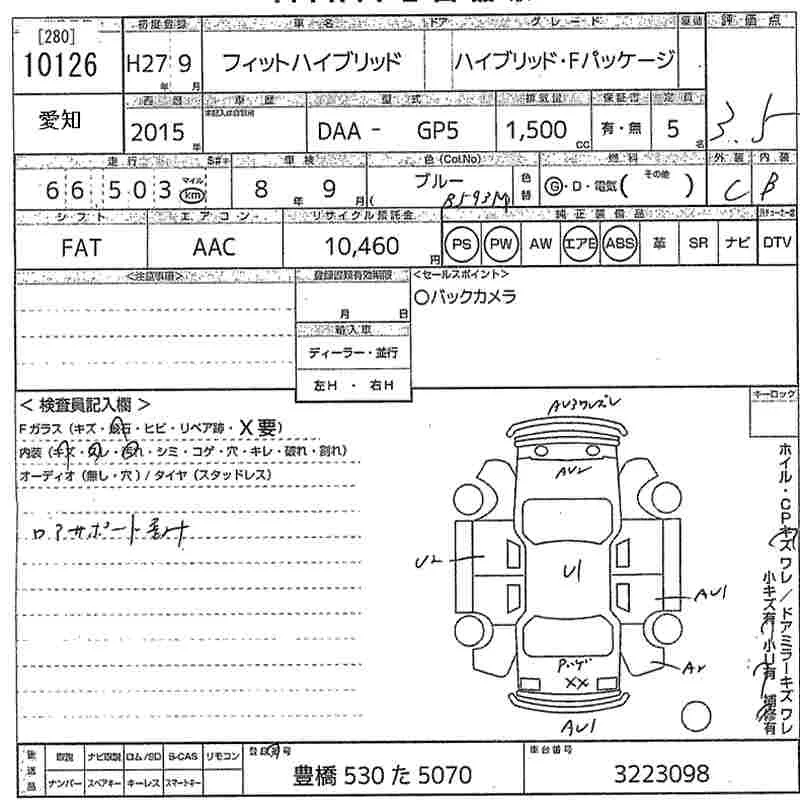 [280]
10126
初度登録 車名 ドア グレード 評価点
H27 9
年 月
フィットハイブリッド
ハイブリッド・Fパッケージ
3.5
愛知
西暦 車歴 型式 排気量 保証書 定員
2015 年
DAA - GP5
1,500 cc
有・無
5 名
走行 車検 色(Col.No) 燃料 外装 内装
66503 マイル km
8 年 9 月
ブルー
B593M
色替
G・D・電気( その他 )
C B
シフト エアコン リサイクル預託金 純正装備品
FAT
AAC
10,460 円
PS PW AW エアB ABS 革 SR ナビ DTV
<注意事項>
登録書類有効期限
月 日
輸入車
ディーラー・並行
左H ・ 右H
<セールスポイント>
○バックカメラ
＜ 検査員記入欄 ＞
Fガラス (キズ・飛石・ヒビ・リペア跡・X要)
内装 (キズ・スレ・汚れ・シミ・コゲ・穴・キレ・破れ・割れ)
オーディオ (無し・穴) / タイヤ (スタッドレス)
ロアサポート
キーロック
AU2
U2
U1
AU1
XX
AU1
ホイル・CPキズ ワレ / ドアミラーキズ ワレ
小キズ有 小U有 補修有
後送品
取説 ナビ取説 ロム/SD B-CAS リモコン
ナンバー スペアキー キーレス スマートキー
登録番号
豊橋 530 た 5070
車台番号
3223098